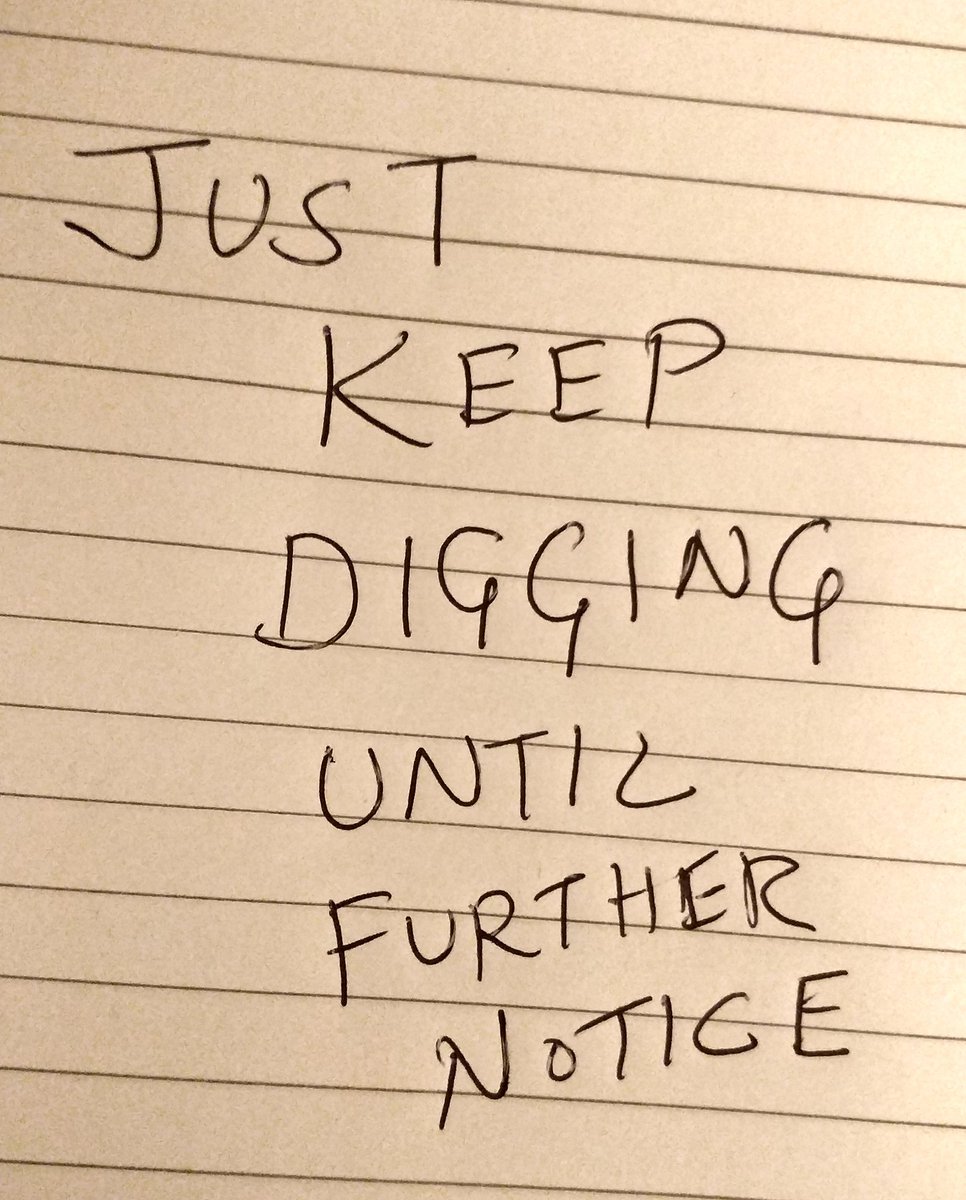 JUST
KEEP
DIGGING
UNTIL
FURTHER
NOTICE